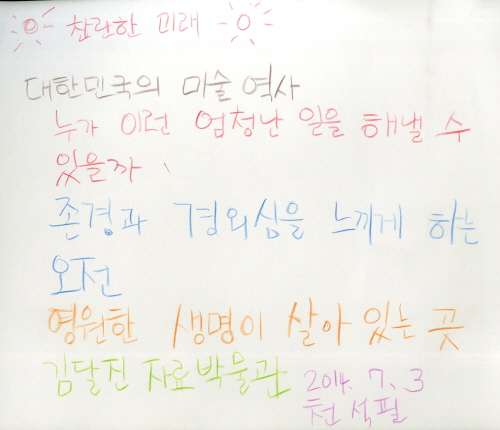 찬란한 미래
대한민국의 미술 역사
누가 이런 엄청난 일을 해낼 수
있을까
존경과 경외심을 느끼게 하는
오전
영원한 생명이 살아 있는 곳
김달진 자료박물관
2014. 7. 3
천석필